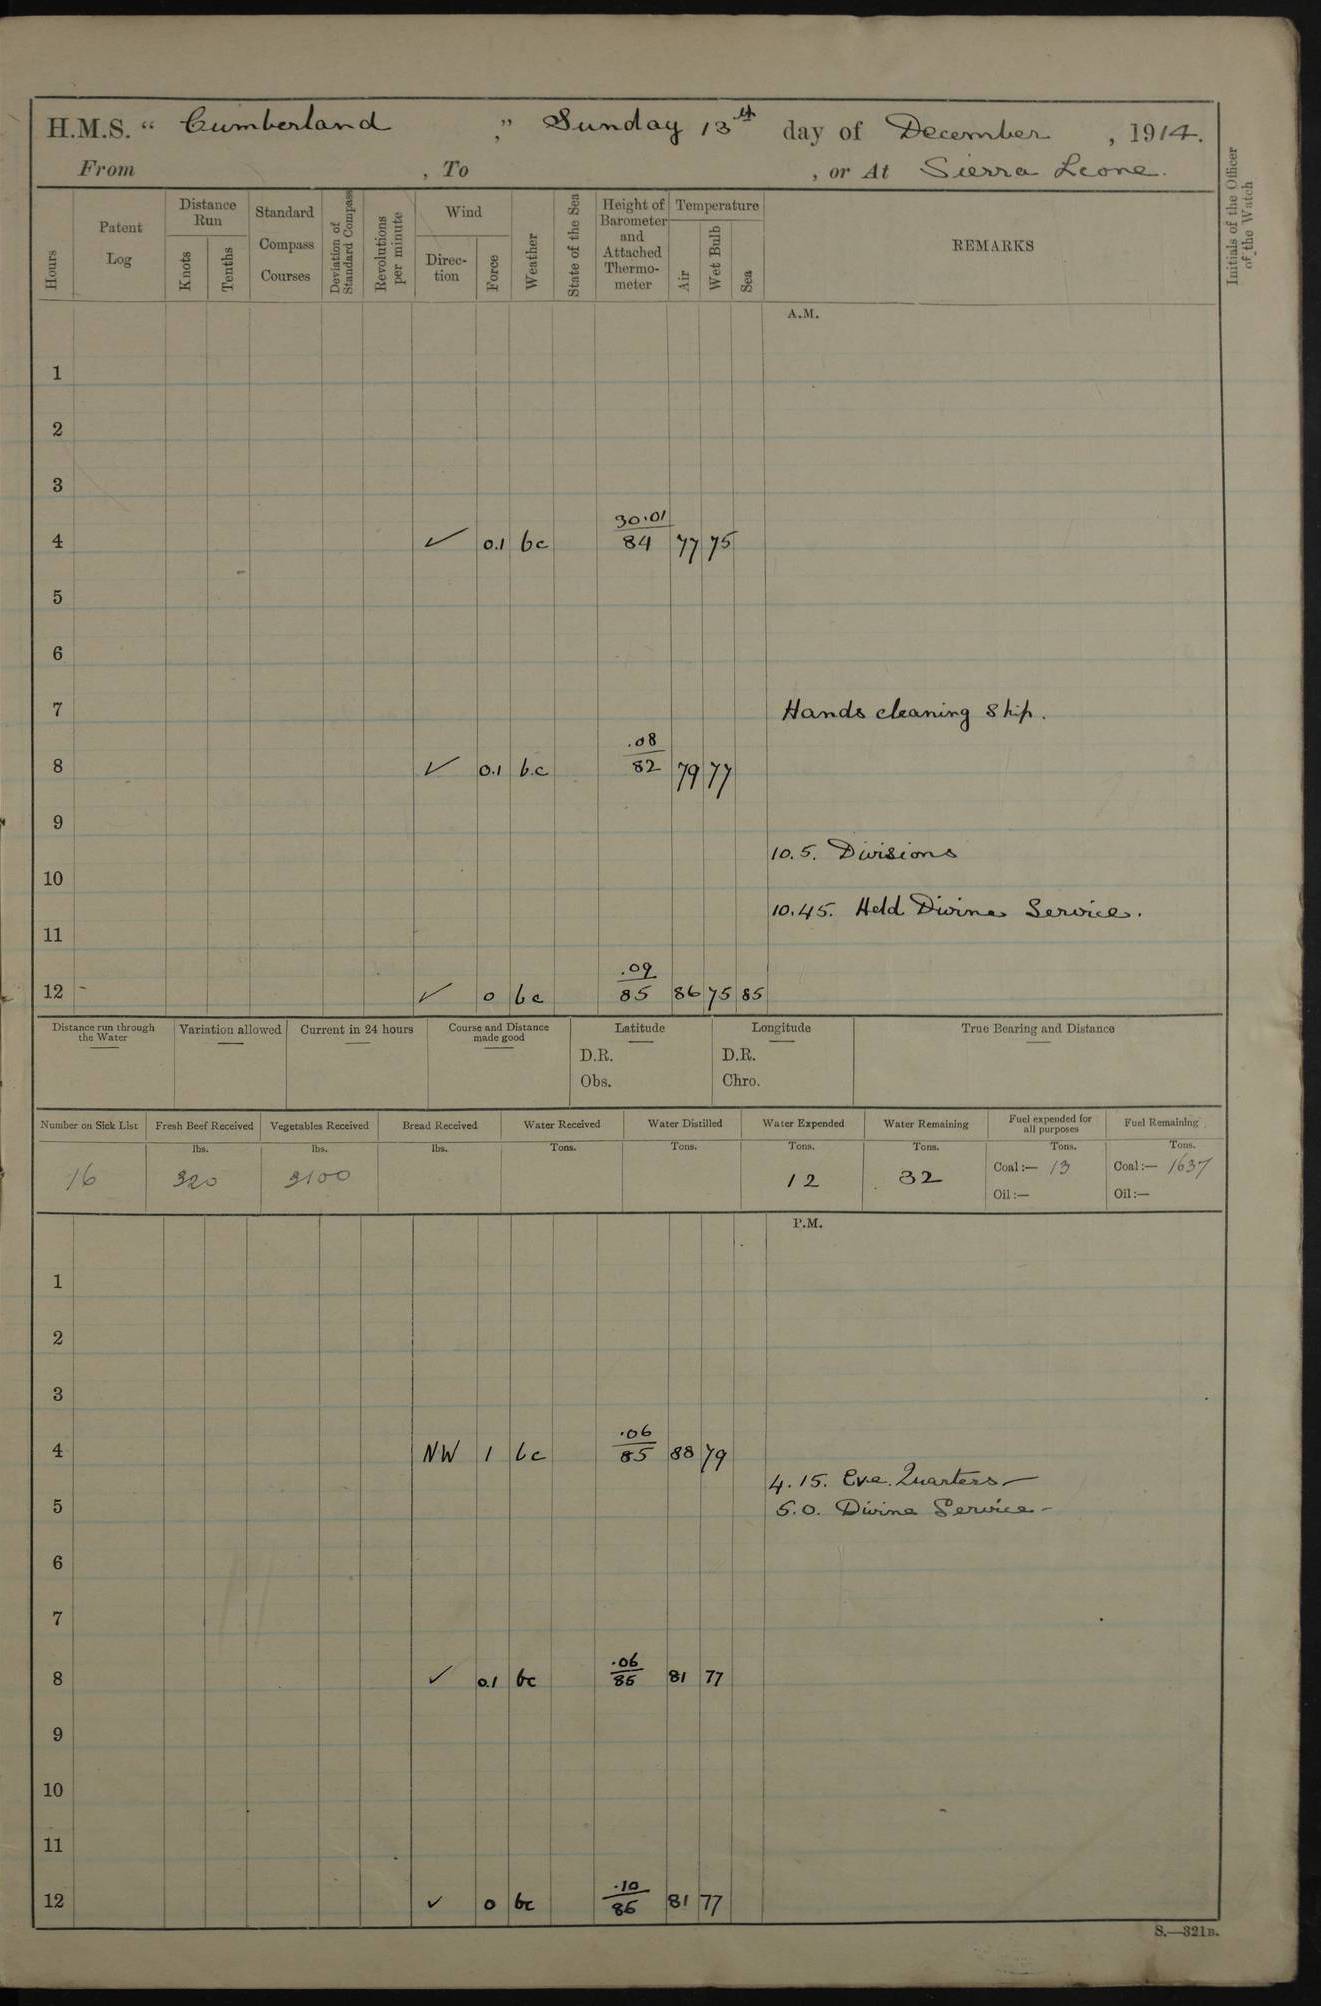 H.M.S. “ Cumberland ,” Sunday 13th day of December , 1914.
From , To , or At Sierra Leone.
Hours
Patent Log
Distance Run
Knots
Tenths
Standard Compass Courses
Deviation of Standard Compass
Revolutions per minute
Wind
Direc-tion
Force
Weather
State of the Sea
Height of Barometer and Attached Thermo-meter
Temperature
Air
Wet Bulb
Sea
REMARKS
Initials of the Officer of the Watch
A.M.
1
2
3
4 ✓ 0.1 bc 30.01/84 77 75
5
6
7 Hands cleaning ship.
8 ✓ 0.1 b.c .08/82 79 77
9
10.5. Divisions
10
10.45. Held Divine Service.
11
12 ✓ 0 bc .09/85 86 75 85
Distance run through the Water
Variation allowed
Current in 24 hours
Course and Distance made good
Latitude
D.R.
Obs.
Longitude
D.R.
Chro.
True Bearing and Distance
Number on Sick List 16
Fresh Beef Received lbs. 320
Vegetables Received lbs. 3100
Bread Received lbs.
Water Received Tons.
Water Distilled Tons.
Water Expended Tons. 12
Water Remaining Tons. 32
Fuel expended for all purposes Tons.
Coal:— 13
Oil:—
Fuel Remaining Tons.
Coal:— 1637
Oil:—
P.M.
1
2
3
4 NW 1 bc .06/85 88 79
4.15. Eve. Quarters—
5 5.0. Divine Service-
6
7
8 ✓ 0.1 bc .06/85 81 77
9
10
11
12 ✓ 0 bc .10/86 81 77
S.—321B.